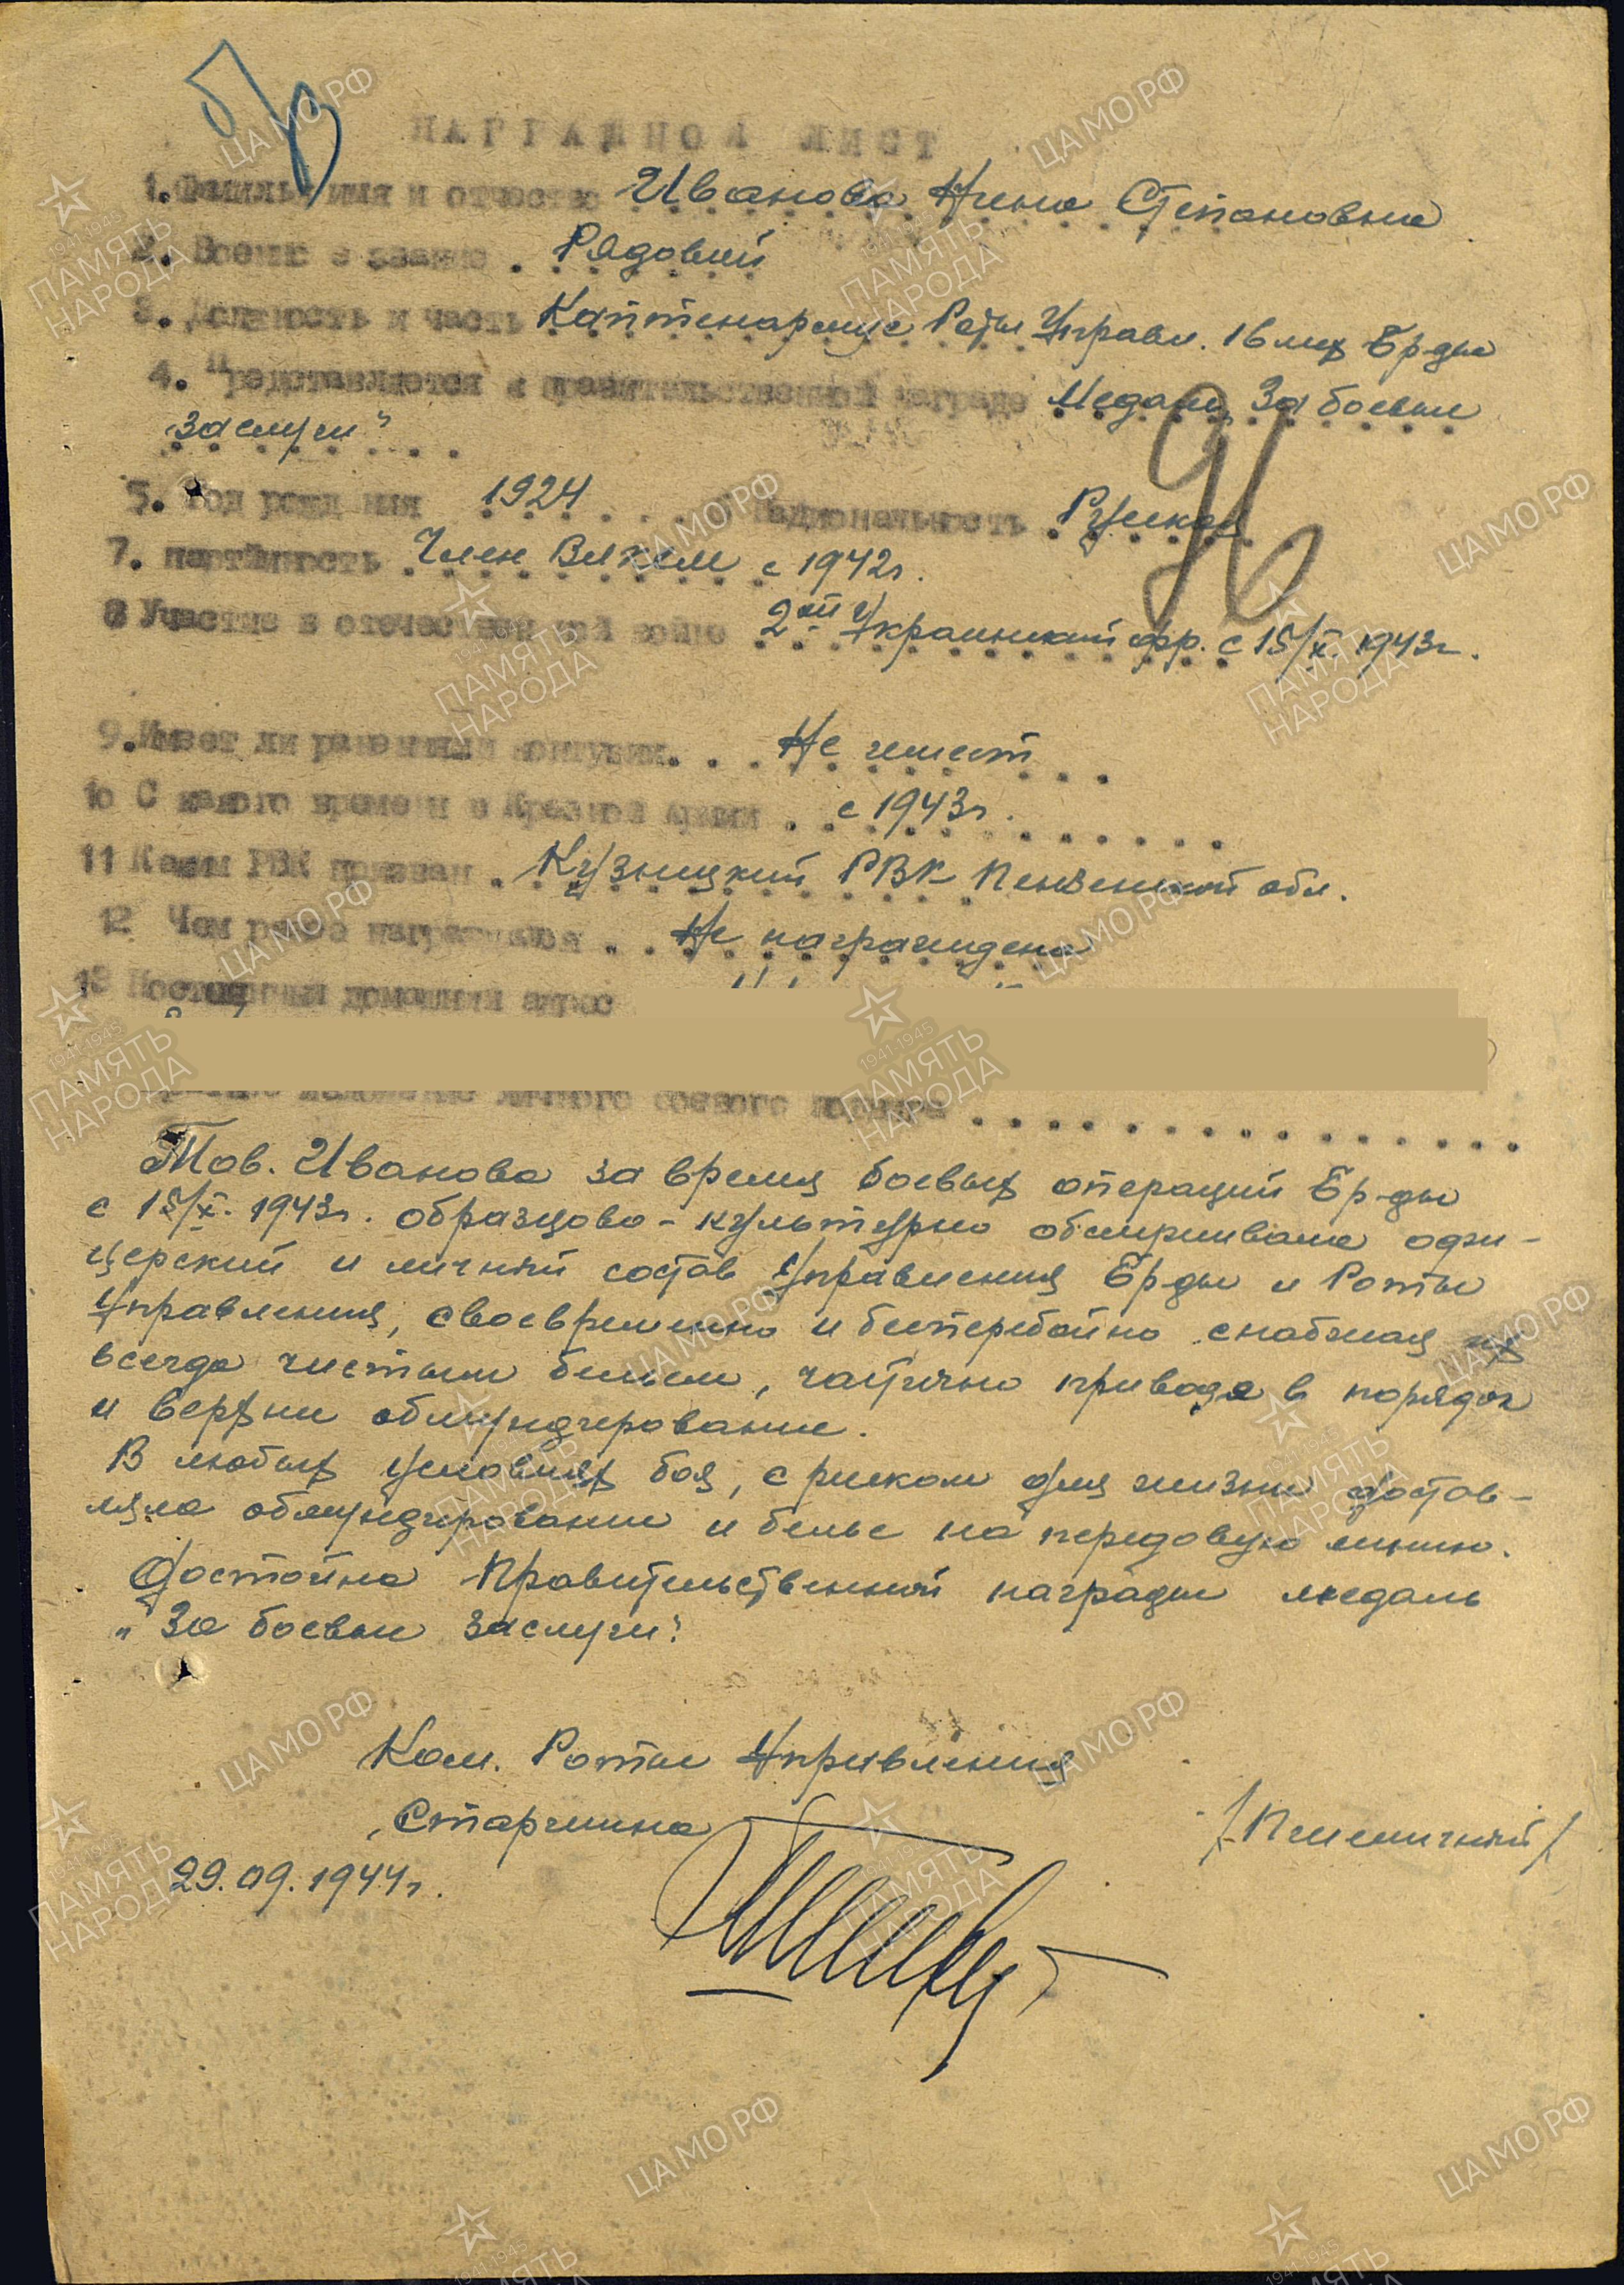 НАГРАДНОЙ ЛИСТ
1. Фамилья имя и отчество Иванова Нина Степановна
2. Военно е звание . Рядовий
3. Должность и часть Каптенармус Роты Управл. 16 мех Бр-ды
4. Представляется к правительственной награде Медаль „За боевые
заслуги"
5. Год рожд ния 1924 6 Национальность Русская
7. партийность Член ВЛКСМ с 1942г.
8 Участие в отечествен ной войне 2ой Украинский фр. с 15/X. 1943г.
9. Имеет ли ранения и контузии. . . Не имеет
10 С какого времени в Красной армии . . с 1943г.
11 Каким РВК призван . Кузницкий РВК Пензенской обл.
12 Чем ранее награждался . . Не награждена
13 Постоянный домашний адрес
изложение личного боевого подвига
Тов. Иванова за время боевых операций Бр-ды
с 15/X. 1943г. образцово-культурно обслуживала офи-
церский и личный состав Управления Бр-ды и Роты
Управления, своевременно и бесперебойно снабжая их
всегда чистым бельем, частично приводя в порядок
и верхние обмундирование.
В любых условиях боя, с риском для жизни достав-
ляла обмундирование и белье на передовую линию.
Достойна Правительственной награды медаль
„За боевые заслуги".
Ком. Роты Управления
Старшина /Пшеничный/
29.09.1944г.
ЦАМО РФ
1941-1945
ПАМЯТЬ
НАРОДА